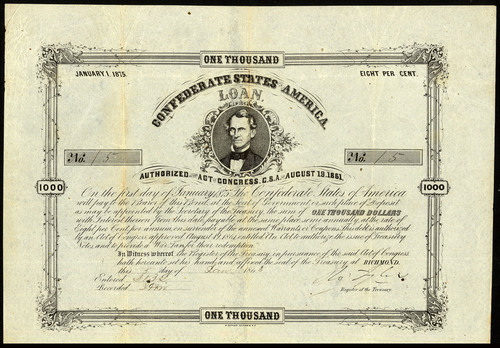 ONE THOUSAND
JANUARY 1, 1875.
EIGHT PER CENT.
CONFEDERATE STATES AMERICA.
LOAN
No. 15
No. 15
AUTHORIZED ACT CONGRESS, C.S.A. AUGUST 19, 1861.
1000
1000
On the first day of January 1875 The Confederate States of America
will pay to the Bearer of this Bond, at the Seat of Government or such place of Deposit
as may be appointed by the Secretary of the Treasury, the sum of ONE THOUSAND DOLLARS
with Interest thereon from this date, payable at the same place, semi annually, at the rate of
Eight per Cent per annum on surrender of the annexed Warrants or Coupons. This debt is authorized
by an Act of Congress approved August 19, 1861, entitled "An Act to authorize the issue of Treasury
Notes, and to provide a War Tax for their redemption."
In Witness whereof, the Register of the Treasury, in pursuance of the said Act of Congress
hath hereunto set his hand, and affixed the seal of the Treasury at RICHMOND.
this day of 186
Entered
Recorded
Register of the Treasury.
ONE THOUSAND